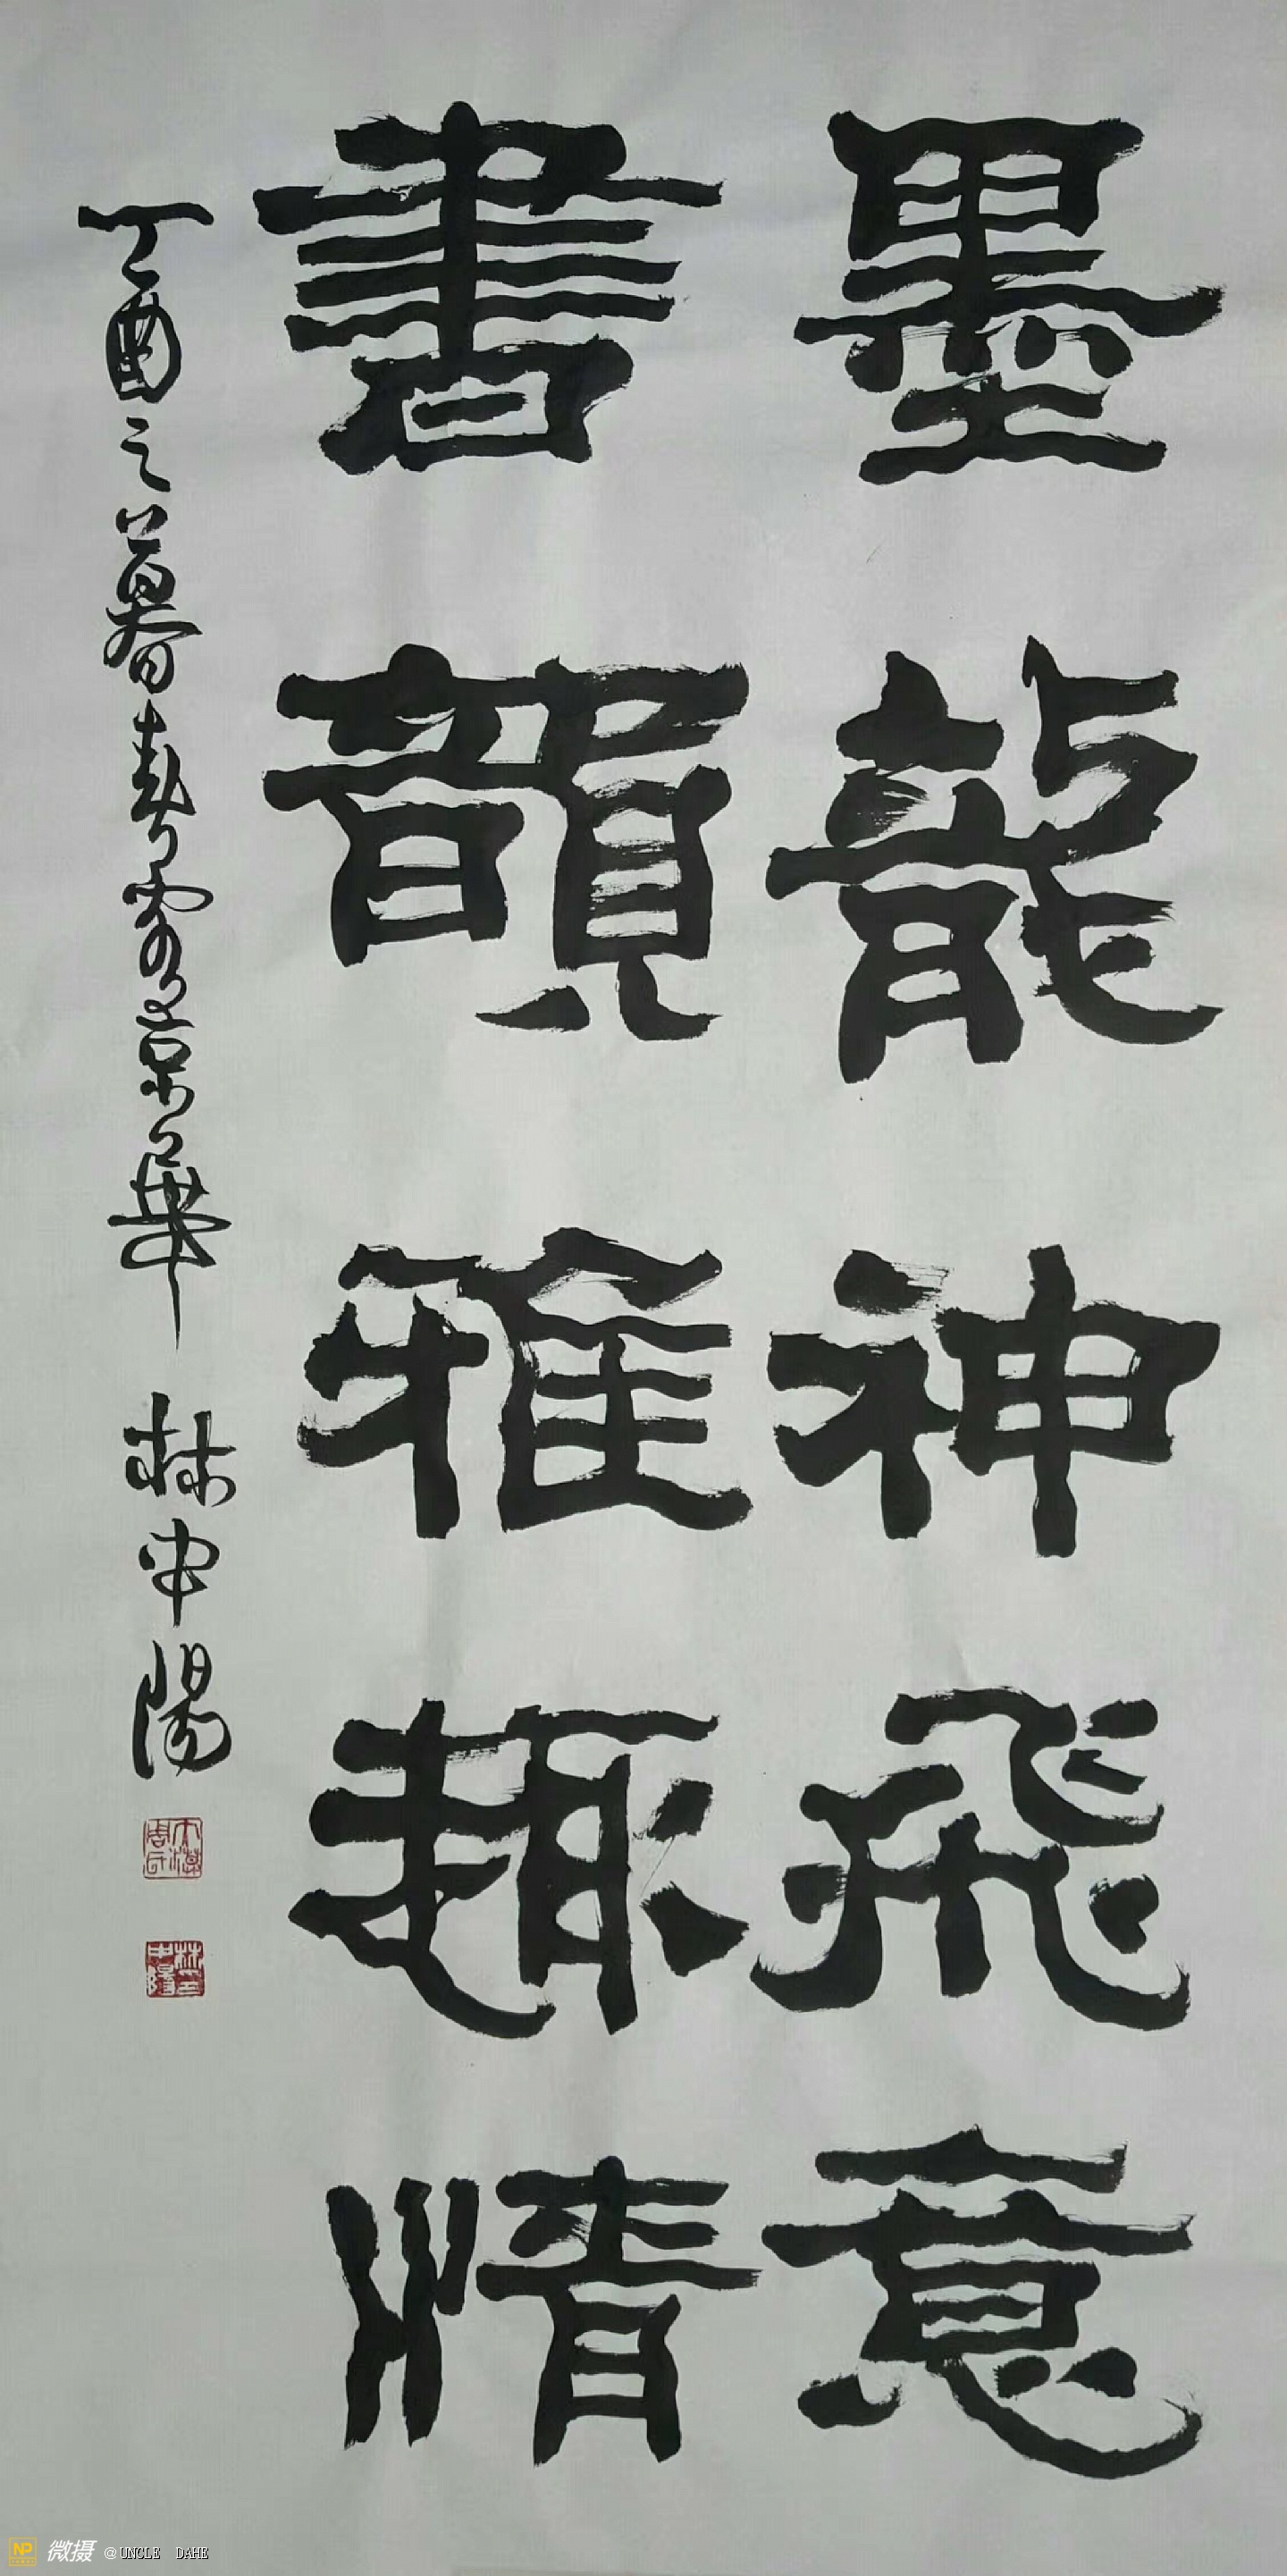 墨龍神飛意
書韻雅趣情
丁酉之暮春書於京華 林中陽
NP 微摄 @UNCLE DAHE